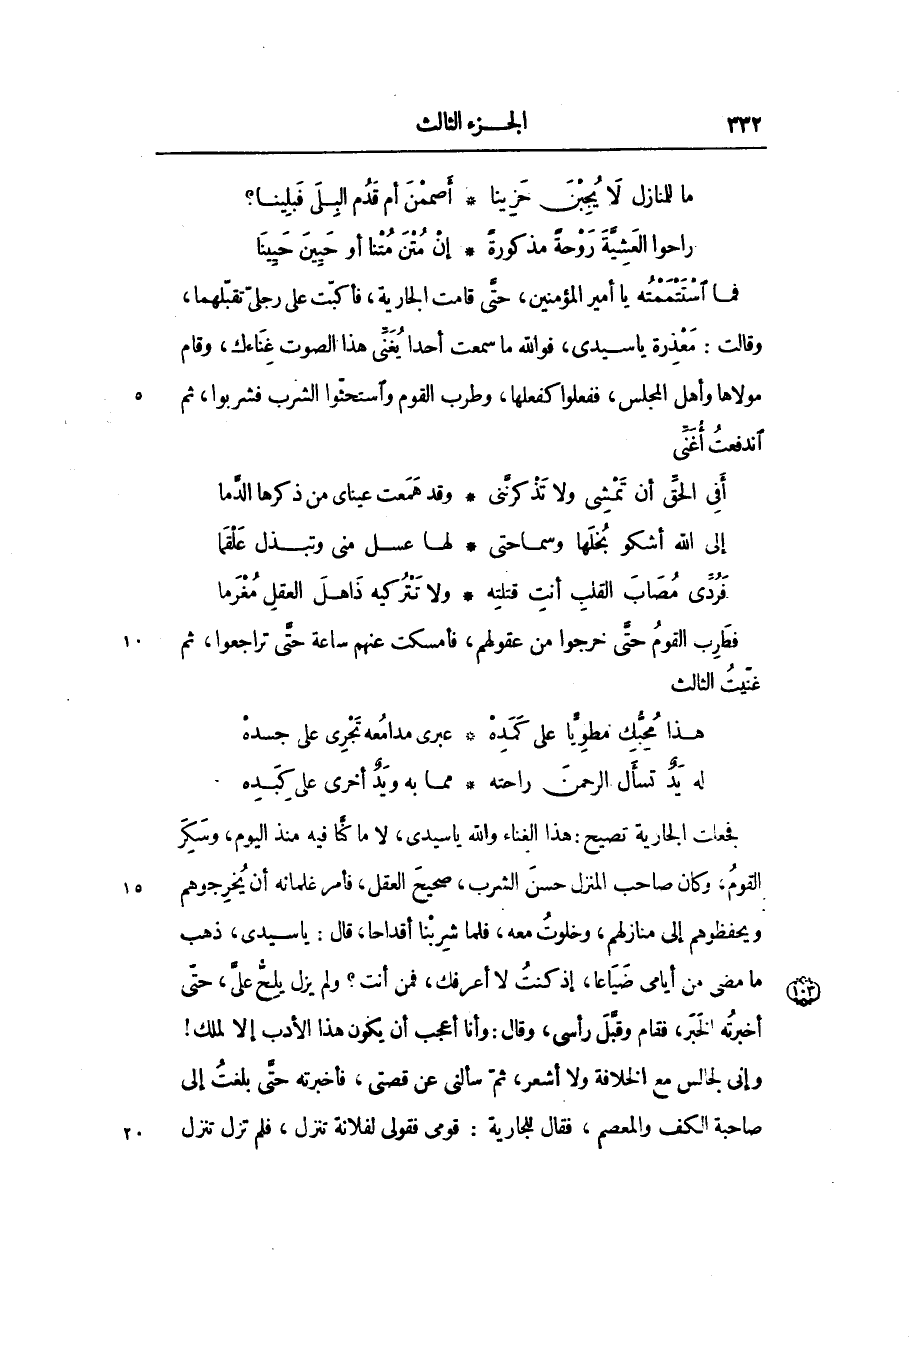 ٣٣٢ الجـــزء الثالث
ما للمنازل لَا يُجِبْنَ حَزِينا * أَصممْنَ أم قَدُم البِــلَى فَبلِينــا؟
راحوا العَشِيَّةَ رَوْحةً مذكورةً * إنْ مُتْنَ مُتْنا أو حَيِينَ حَيِينَا
فمـا ٱسْتَتْمَمْتُه يا أمير المؤمنين، حتَّى قامت الجارية، فأكبّت على رجلىّ تقبّلهما،
وقالت: مَعْذِرة ياســيدى، فوالله ما سمعت أحدا يُغَنِّى هذا الصوت غِنَاءك، وقام
مولاها وأهل المجلس، ففعلوا كفعلها، وطرب القوم وٱستحثّوا الشرب فشربوا، ثم ٥
ٱندفعتُ أُغَنِّى
أَفِى الحَقِّ أن تَمْشِى ولا تَذْكرنَّنى * وقد هَمَعت عيناى من ذكرها الدَّما
إلى الله أشكو بُخلَها وسمــاحتى * لهــا عســل منى وتبــذل عَلْقَما
فَرُدِّى مُصَابَ القلب أنتِ قتلتِه * ولا تَتْرُكيه ذَاهــلَ العقلِ مُغْرَما
فطَرِب القومُ حتَّى خرجوا من عقولهم، فأمسكت عنهم ساعة حتَّى تراجعوا، ثم ١٠
غنّيتُ الثالث
هــذا مُحِبُّك مطويًّا على كَمَدِهْ * عبرى مدامُعه تَجْرِى على جسدهْ
له يَدٌ تسأَل الرحمنَ راحته * ممــا به ويَدٌ أخرى على كَبَــدِه
فجعلت الجارية تصيح: هذا الغناء والله ياسيدى، لا ما كنَّا فيه منذ اليوم، وسَكِرَ
القومُ، وكان صاحب المنزل حسنَ الشرب، صحيحَ العقل، فأمر غلمانه أن يُخرجوهم ١٥
ويحفظوهم إلى منازلهم، وخلوتُ معه، فلما شرِبْنا أقداحا، قال: ياسيدى، ذهب
ما مضى من أيامى ضَيَاعا، إذ كنتُ لا أعرفك، فمن أنت؟ ولم يزل يلِحُّ علىَّ، حتَّى ١٠٣
أخبرتُه الخَبَر، فقام وقبَّلَ رأسى، وقال: وأنا أعجب أن يكون هذا الأدب إلا لملك!
وإنى لجالس مع الخلافة ولا أشعر، ثمّ سألنى عن قصتى، فأخبرته حتَّى بلغتُ إلى
صاحبة الكف والمعصم، فقال للجارية: قومى فقولى لفلانة تنزل، فلم تزل تنزل ٢٠